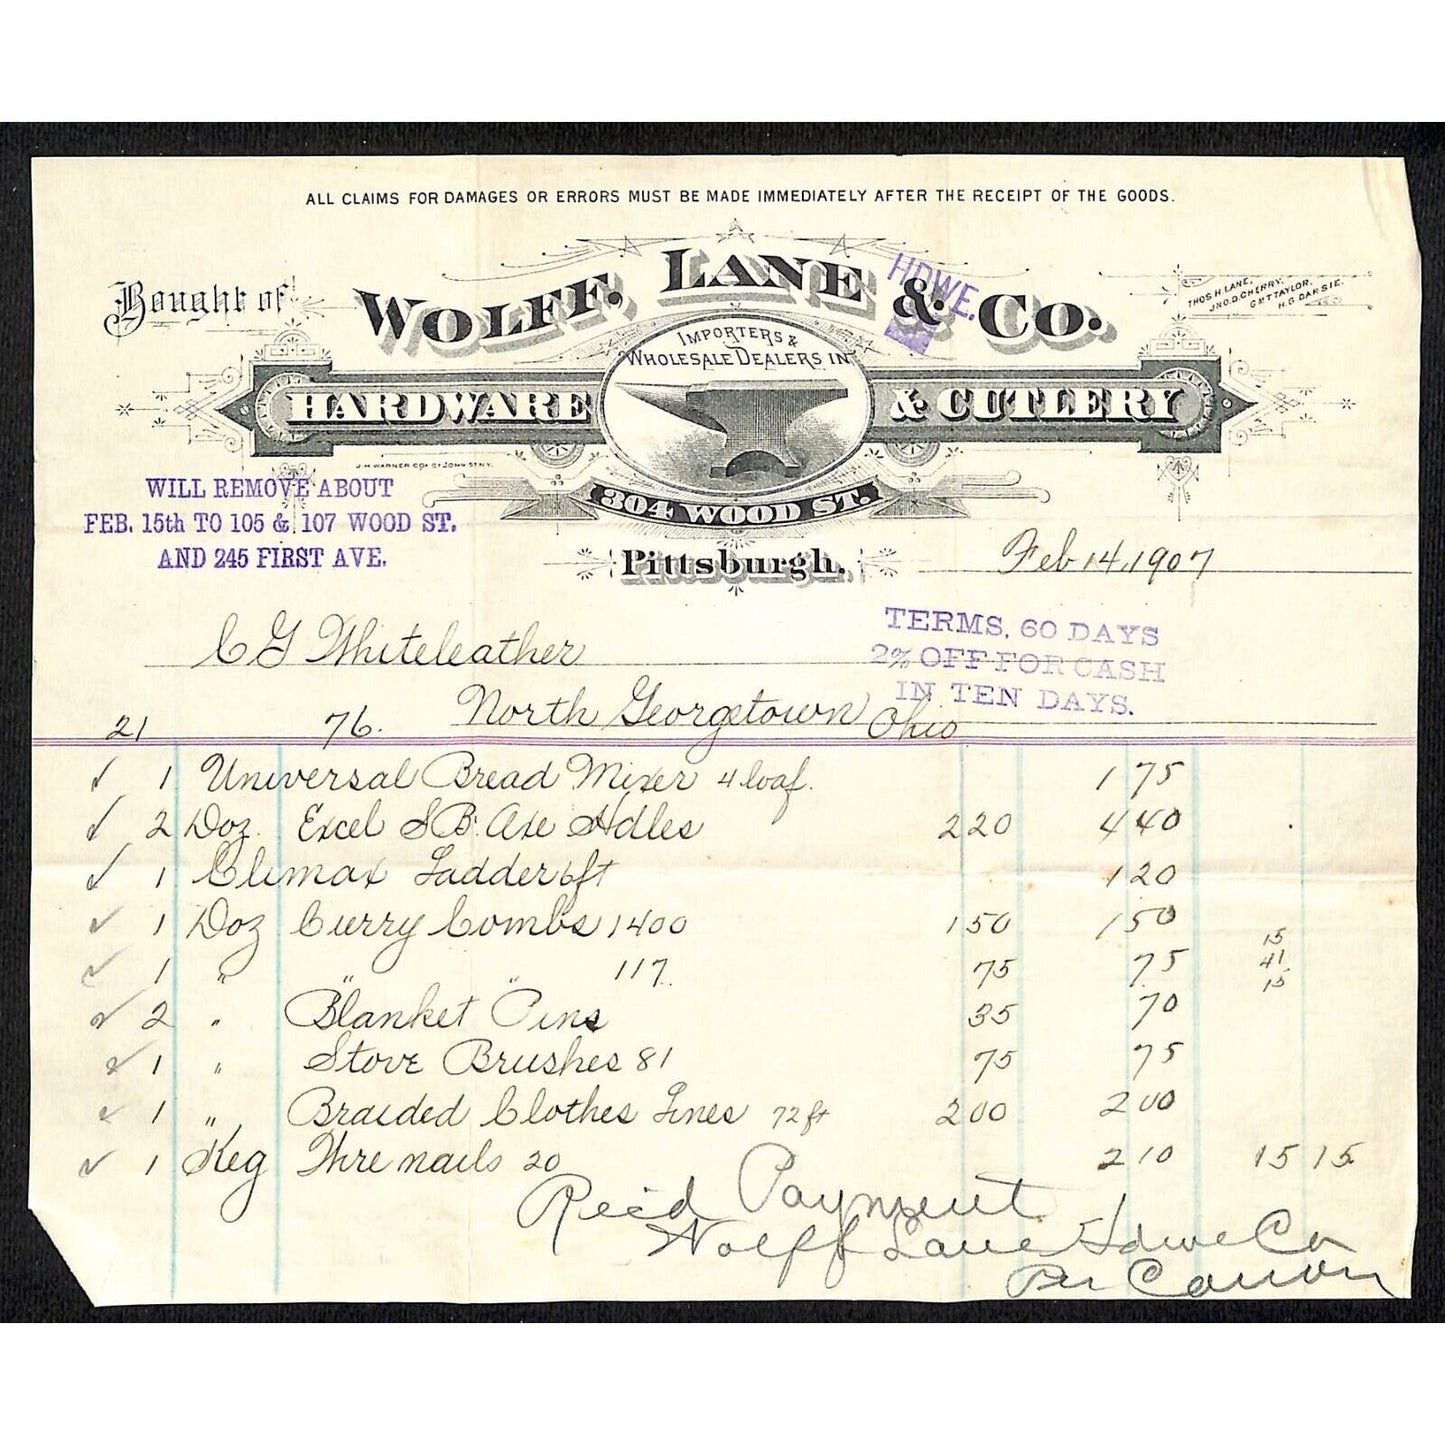 ALL CLAIMS FOR DAMAGES OR ERRORS MUST BE MADE IMMEDIATELY AFTER THE RECEIPT OF THE GOODS.
Bought of
WOLFF, LANE & CO.
HDWE.
THOS H. LANE.
JNO. D. CHERRY.
G M T TAYLOR.
H. G. DARSIE.
IMPORTERS &
WHOLESALE DEALERS IN
HARDWARE & CUTLERY
J. H. WARNER CO. 81 JOHN ST. N.Y.
304 WOOD ST.
Pittsburgh.
WILL REMOVE ABOUT
FEB. 15th TO 105 & 107 WOOD ST.
AND 245 FIRST AVE.
Feb 14, 1907
C G Whiteleather
TERMS, 60 DAYS
2% OFF FOR CASH
IN TEN DAYS.
21 76. North Georgetown Ohio
✓ 1 Universal Bread Mixer 4 loaf. 1 75
✓ 2 Doz. Excel S B. Axe Hdles 2 20 4 40
✓ 1 Climax Ladder 6 ft 1 20
✓ 1 Doz Curry Combs 1400 1 50 1 50
✓ 1 " " " 117. 75 75
15
41
15
✓ 2 " Blanket Pins 35 70
✓ 1 " Stove Brushes 81 75 75
✓ 1 " Braided Clothes Lines 72 ft 2 00 2 00
✓ 1 Keg Wire nails 20 2 10 15 15
Recd Payment
Wolff Lane Hdwe Co
Per